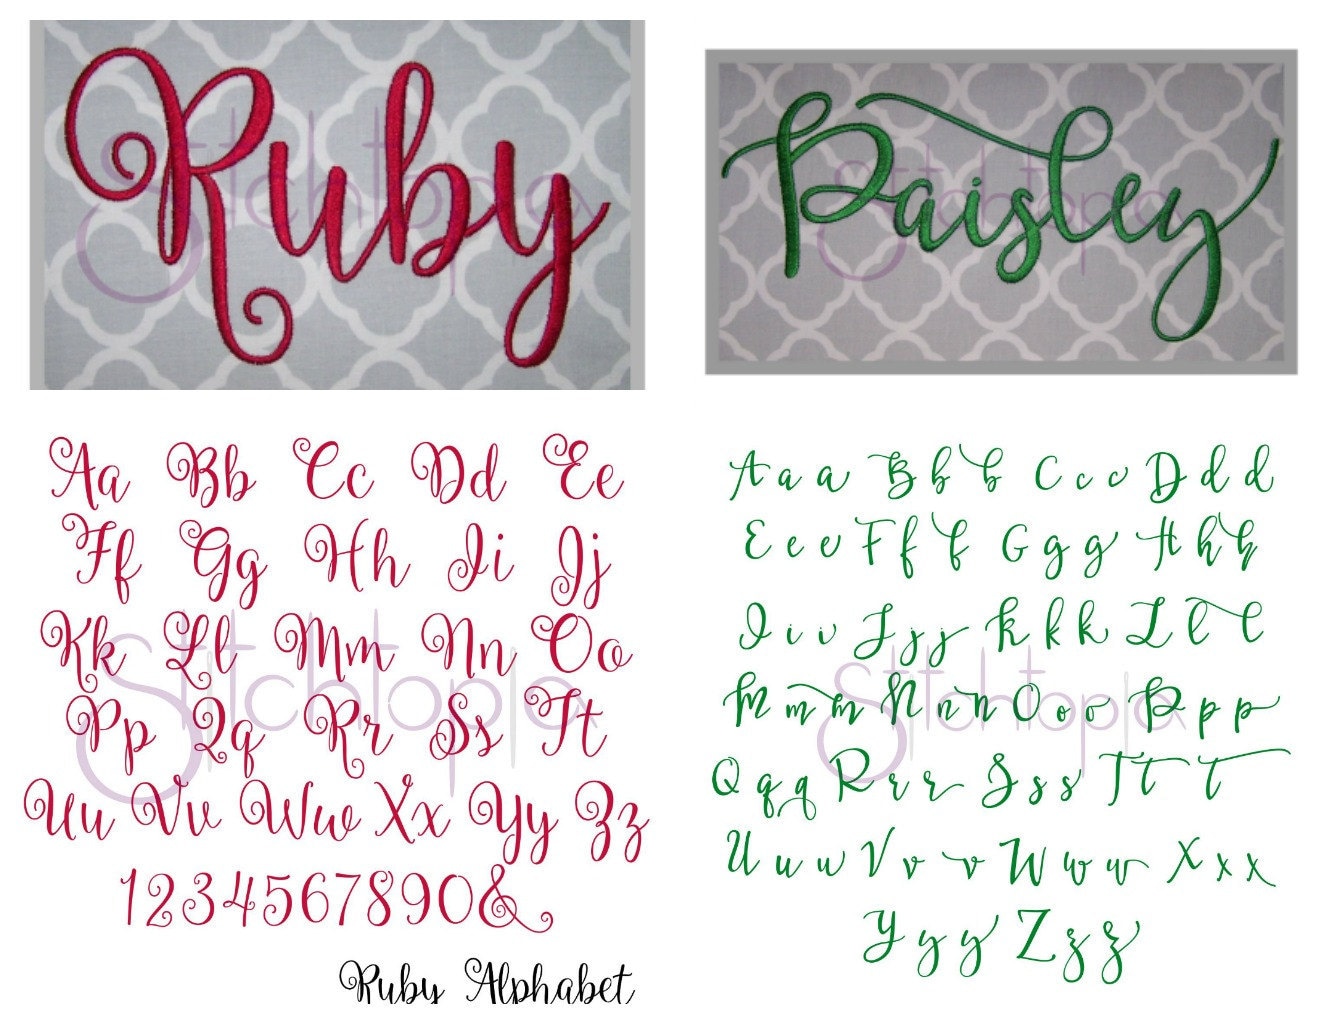 Ruby
Stitchtopia
Paisley
Stitchtopia
Aa Bb Cc Dd Ee
Ff Gg Hh Ii Jj
Kk Ll Mm Nn Oo
Stitchtopia
Pp Qq Rr Ss Tt
Uu Vv Ww Xx Yy Zz
1234567890&
Ruby Alphabet
A a a B b b C c c D d d
E e e F f f G g g H h h
I i i J j j K k k L l l
Stitchtopia
M m m N n n O o o P p p
Q q q R r r S s s T t t
U u u V v v W w w X x x
Y y y Z z z